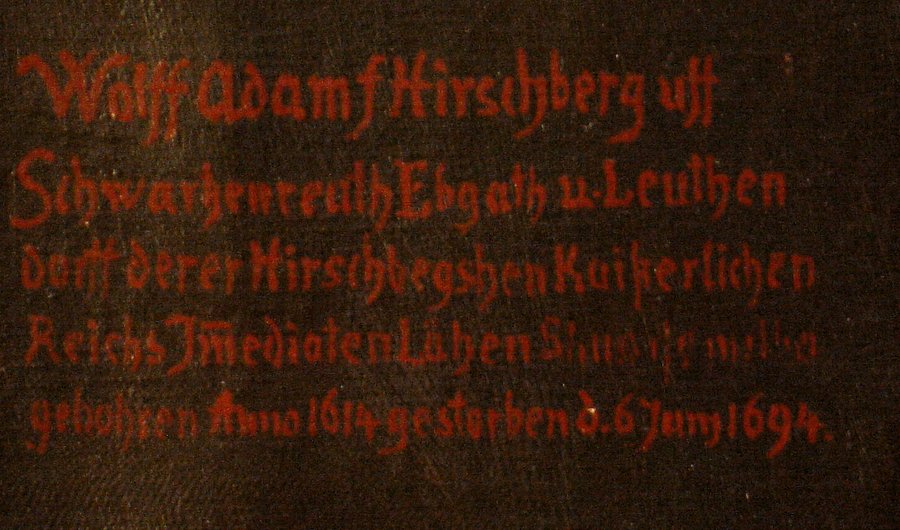 Wolff Adam f Hirschberg uff
Schwartzenreuth Ebgath u. Leuthen
dorff derer Hirschbegshen Kaiſzerlichen
Reichs Jm̅ediaten Lähen
gebohren Anno 1614 gestorben d. 6 Junij 1694.